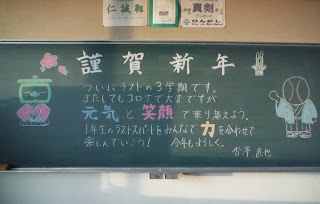 仁誠
真剣
謹賀新年
ついにラストの3学期です。
またしてもコロナで大変ですが
元気と笑顔で乗り越えよう。
1年生のラストスパートをみんなで力を合わせて
楽しんでいこう! 今年もよろしく。